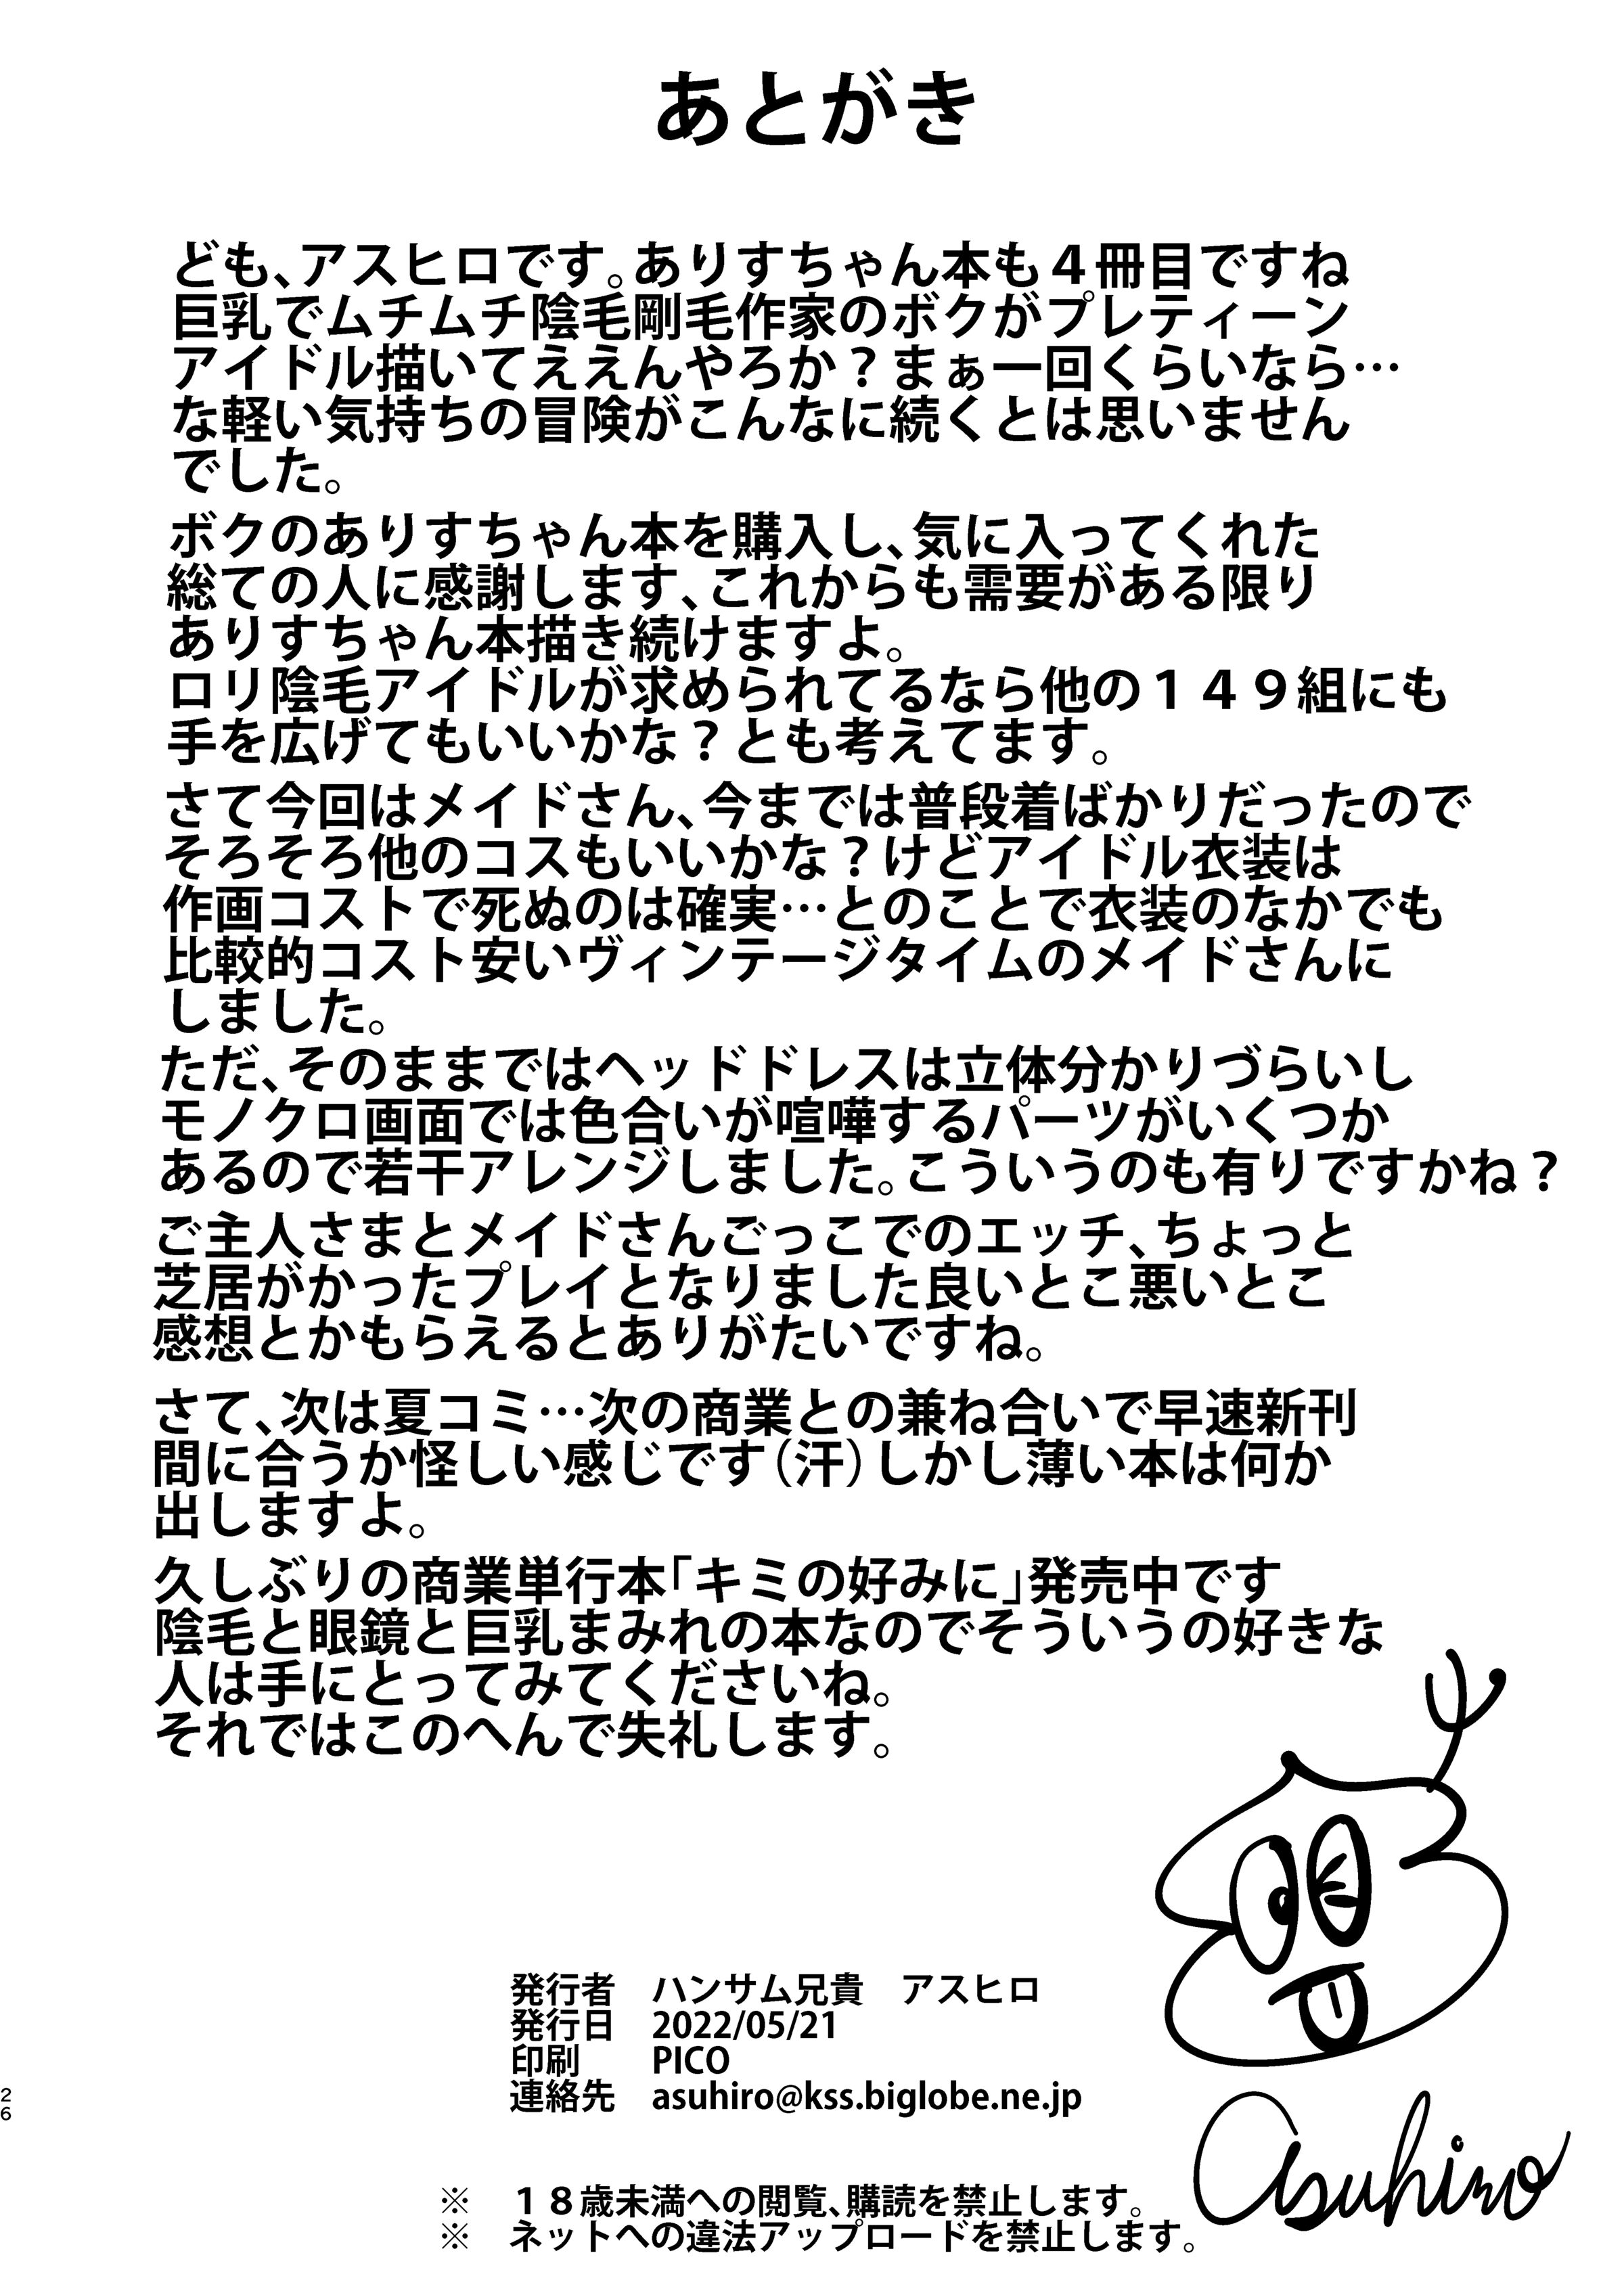 あとがき
ども、アスヒロです。ありすちゃん本も4冊目ですね
巨乳でムチムチ陰毛剛毛作家のボクがプレティーン
アイドル描いてええんやろか？まぁ一回くらいなら…
な軽い気持ちの冒険がこんなに続くとは思いません
でした。
ボクのありすちゃん本を購入し、気に入ってくれた
総ての人に感謝します、これからも需要がある限り
ありすちゃん本描き続けますよ。
ロリ陰毛アイドルが求められてるなら他の１４９組にも
手を広げてもいいかな？とも考えてます。
さて今回はメイドさん、今までは普段着ばかりだったので
そろそろ他のコスもいいかな？けどアイドル衣装は
作画コストで死ぬのは確実…とのことで衣装のなかでも
比較的コスト安いヴィンテージタイムのメイドさんに
しました。
ただ、そのままではヘッドドレスは立体分かりづらいし
モノクロ画面では色合いが喧嘩するパーツがいくつか
あるので若干アレンジしました。こういうのも有りですかね？
ご主人さまとメイドさんごっこでのエッチ、ちょっと
芝居がかったプレイとなりました良いとこ悪いとこ
感想とかもらえるとありがたいですね。
さて、次は夏コミ…次の商業との兼ね合いで早速新刊
間に合うか怪しい感じです（汗）しかし薄い本は何か
出しますよ。
久しぶりの商業単行本「キミの好みに」発売中です
陰毛と眼鏡と巨乳まみれの本なのでそういうの好きな
人は手にとってみてくださいね。
それではこのへんで失礼します。
発行者　ハンサム兄貴　アスヒロ
発行日　2022/05/21
印刷　PICO
連絡先　asuhiro@kss.biglobe.ne.jp
※　１８歳未満への閲覧、購読を禁止します。
※　ネットへの違法アップロードを禁止します。
asuhiro
26